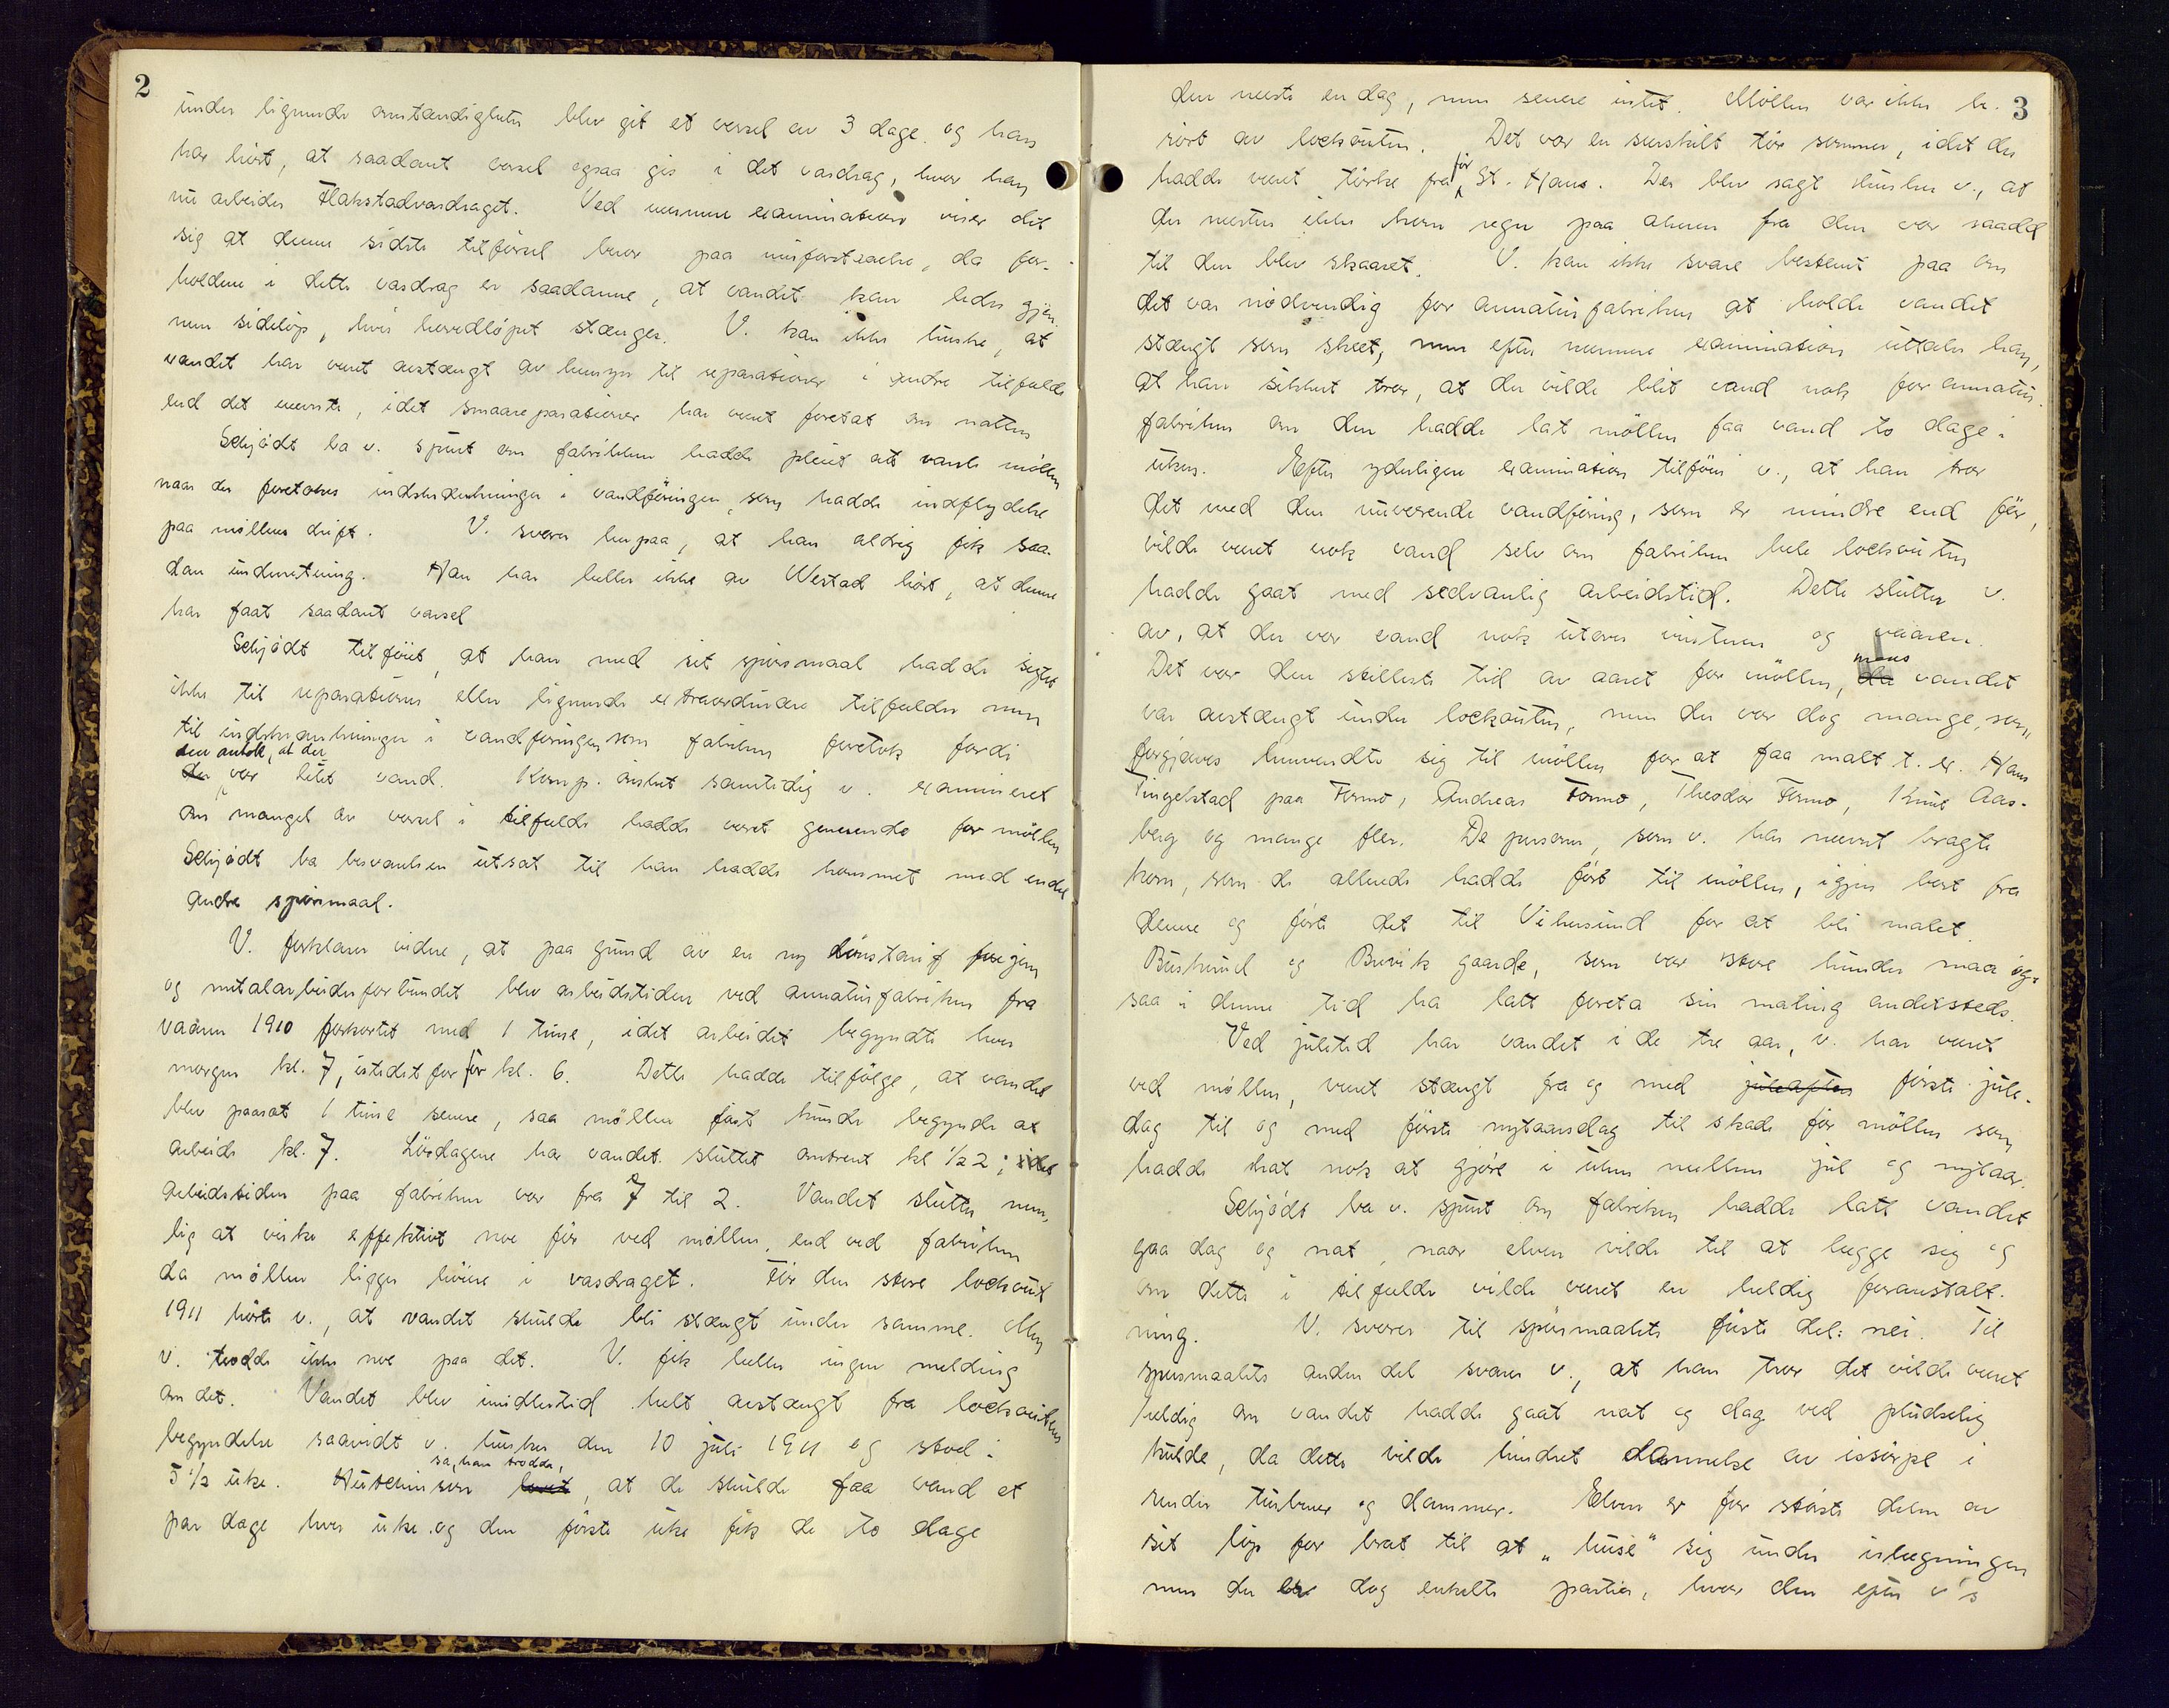 2
under lignende omstændigheter blev git et varsel av 3 dage og han
har hört, at saadant varsel ogsaa gis i det vasdrag, hvor han
nu arbeider Flakstadvasdraget. Ved nærmere examinations viser det
sig at denne sidste tilförsel beror paa misforstaaelse, da for-
holdene i dette vasdrag er saadanne, at vandet kan ledes gjen-
nem sidelöp, hvis hovedlöpet stænges. V. kan ikke huske, at
vandet har været avstængt av hensyn til reparationer i andre tilfælde
end det nævnte, idet smaareparationer har været foretat om natten
Schjödt ba v. spurt om fabrikken hadde pleiet at varsle möllen
naar der foretokes indskrænkninger i vandföringen, som hadde indflydelse
paa möllens drift. V. svarer herpaa, at han aldrig fik saa-
dan underretning. Han har heller ikke av Westad hört, at denne
har faat saadant varsel
Schjödt tilföiet, at han med sit spörsmaal hadde sigtet
ikke til reparationer eller lignende extraordinære tilfælder men
til indskrænkninger i vandföringen som fabriken foretok fordi
den antok, at der
der var litet vand. Komp. önsket samtidig v. examineret
om mangel av varsel i tilfælde hadde været generende for möllen
Schjödt ba besvarelsen utsat til han hadde kommet med endel
andre spörsmaal.
V. forklarer videre, at paa grund av en ny lönstarif
og metalarbeiderforbundet blev arbeidstiden ved armaturfabriken fra
vaaren 1910 forkortet med 1 time, idet arbeidet begyndte hver
morgen kl. 7, istedet for för kl. 6. Dette hadde tilfölge, at vandet
blev paasat 1 time senere, saa möllen först kunde begynde at
arbeide kl. 7. Lördagene har vandet sluttet omtrent kl ½ 2; idet
arbeidstiden paa fabriken var fra 7 til 2. Vandet slutter nem-
lig at virke effektivt noe för ved möllen, end ved fabriken
da möllen ligger höiere i vasdraget. För den store lockout
1911 hörte v., at vandet skulde bli stængt under samme. Men
v. trodde ikke noe paa det. V. fik heller ingen melding
om det. Vandet blev imidlertid helt avstængt fra lockoutens
begyndelse saavidt v. husker den 10 juli 1911 og stod i
sa, han trodde,
5 ½ uke. Hutchinson lovet, at de skulde faa vand et
par dage hver uke og den förste uke fik de to dage
3
den næste en dag, men senere intet. Möllen var ikke be-
rört av lockouten. Det var en særskilt tör sommer, idet der
för
hadde været törke fra St. Hans. Der blev sagt husker v., at
der næsten ikke kom regn paa akeren fra den var saadd
til den blev skaaret. V. kan ikke svare bestemt paa om
det var nödvendig for armaturfabriken at holde vandet
stængt som skeet, men efter nærmere examination uttaler han,
at han sikkert tror, at der vilde blit vand nok for armatur-
fabriken om den hadde lat möllen faa vand to dage i
uken. Efter yderligere examination tilföier v., at han tror
det med den nuværende vandföring, som er mindre end för,
vilde været nok vand selv om fabriken hele lockouten
hadde gaat med sedvanlig arbeidstid. Dette slutter v.
av, at der var vand nok utover vinteren og vaaren.
mens
Det var den stilleste tid av aaret for möllen, da vandet
var avstængt under lockouten, men der var dog mange, som
forgjæves henvendte sig til möllen for at faa malt t. ex. Hans
Tingelstad paa Formo, Andreas Formo, Theodor Formo, Knut Aas-
berg og mange fler. De personer, som v. har nævnt bragte
korn, som de allerede hadde fört til möllen, igjen bort fra
denne og förte det til Vikersund for at bli malet.
Buskerud og Buvik gaarde, som var store kunder maa og-
saa i denne tid ha latt foreta sin maling andetsteds.
Ved juletid har vandet i de tre aar, v. har været
ved möllen, været stængt fra og med juleaften förste jule-
dag til og med förste nytaarsdag til skade for möllen som
hadde hat nok at gjöre i uken mellem jul og nytaar.
Schjödt ba v. spurt om fabriken hadde latt vandet
gaa dag og nat, naar elven vilde til at lægge sig og
om dette i tilfælde vilde været en heldig foranstalt-
ning. V. svarer til spörsmaalets förste del: nei. Til
spörsmaalets anden del svarer v., at han tror det vilde været
heldig om vandet hadde gaat nat og dag ved pludselig
kulde, da dette vilde hindret dannelse av issörpe i
render turbiner og dammer. Elven er for störste delen av
sit löp for brat til at „huse" sig under islægningen
men der er dog enkelte partier, hvor den efter v's